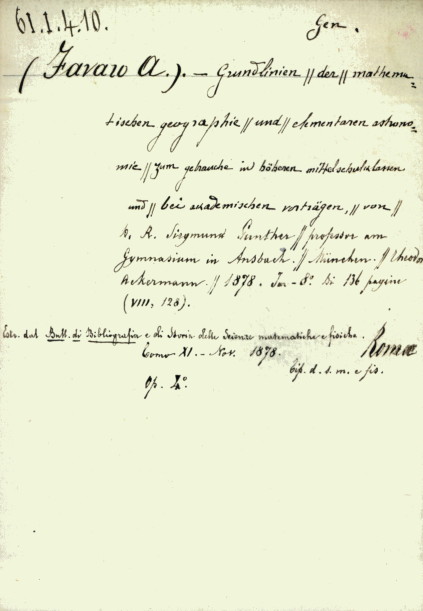 61.1.4.10.
Gen.
(Favaro A.). — Grundlinien // der // mathema-
tischen geographie // und // elementaren astrono-
mie // zum gebrauche in höheren mittelschulklassen
und // bei akademischen vorträgen, // von //
D. R. Siegmund Günther // professor am
Gymnasium in Ansbach. // München. // Theodor
Ackermann. // 1878. In-8°. Di 136 pagine
(VIII, 128).
Estr. dal Bull. di Bibliografia e di Storia delle Scienze matematiche e fisiche.
Tomo XI. - Nov. 1878. Roma
tip. d. s. m. e fis.
Op. 4°.